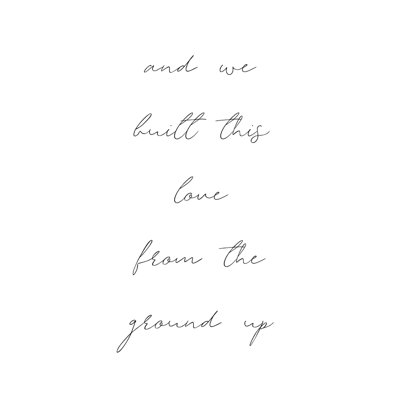 and we
built this
love
from the
ground up